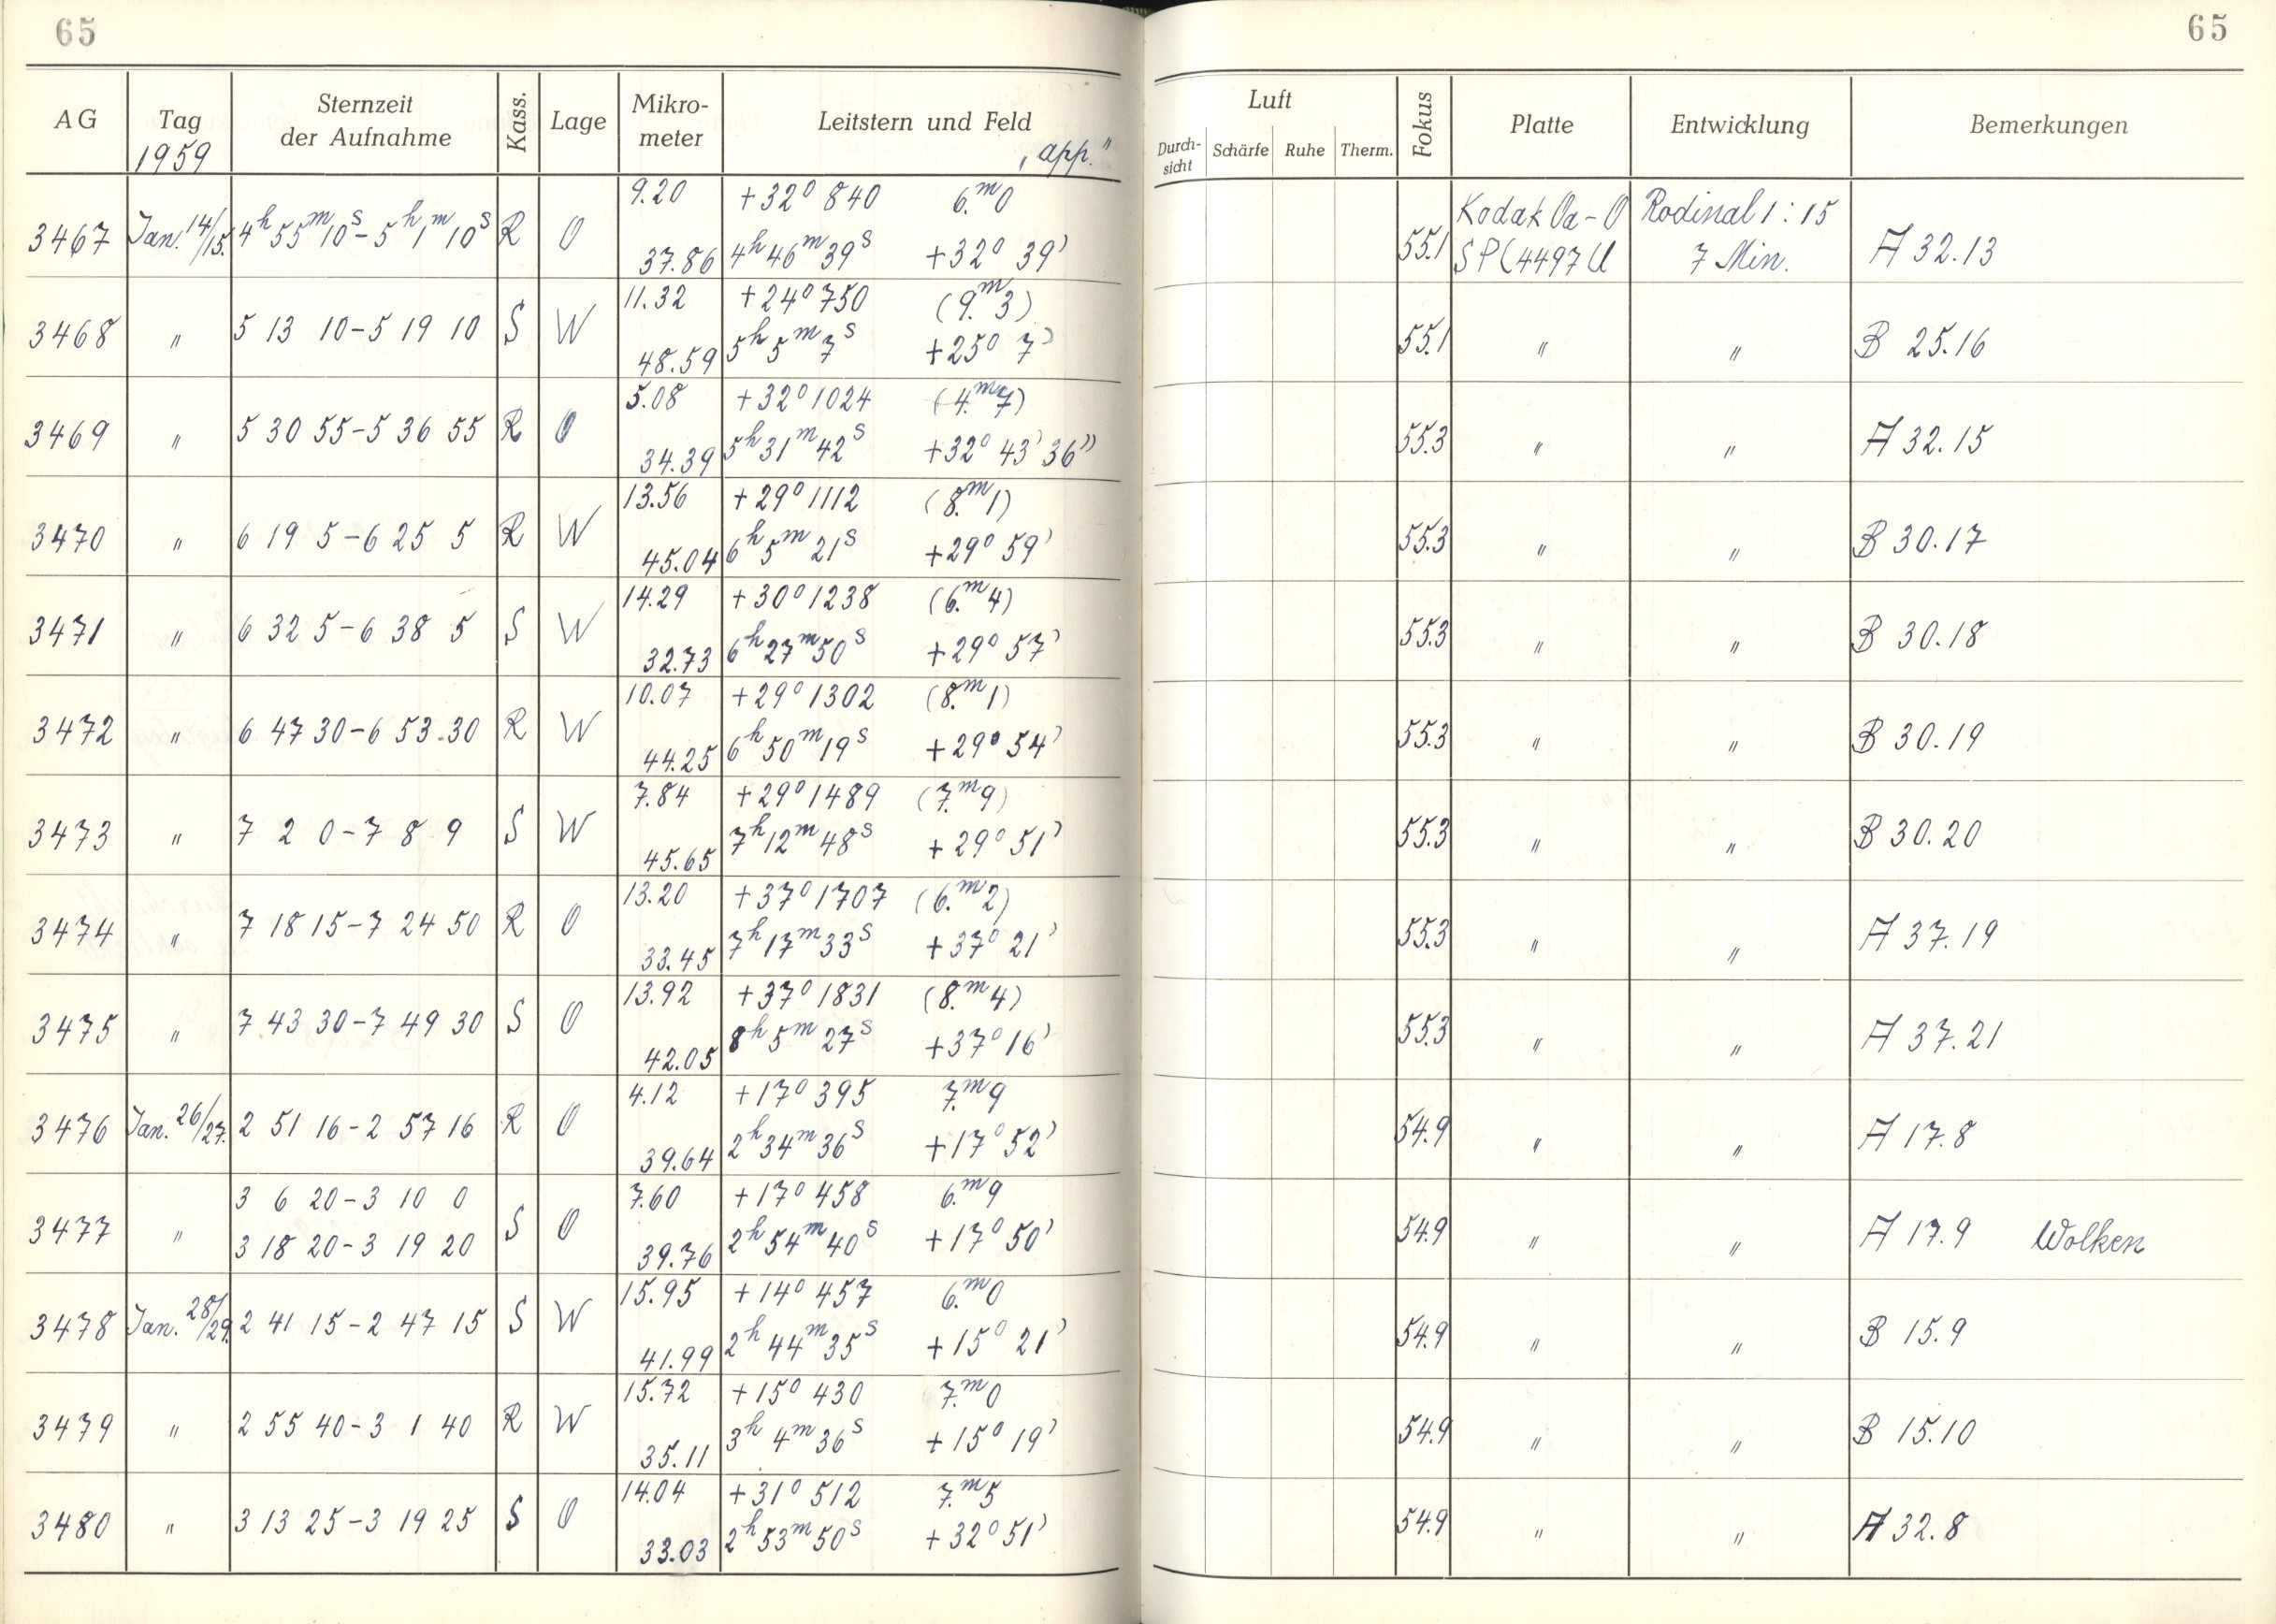 65 65
AG Tag 1959 Sternzeit der Aufnahme Kass. Lage Mikro-meter Leitstern und Feld „app." Luft Durch-sicht Schärfe Ruhe Therm. Fokus Platte Entwicklung Bemerkungen
9.20 +32° 840 6.m0 Kodak Oa-O Rodinal 1:15
3467 Jan. 14/15. 4h 55m 10s - 5h 1m 10s R O 37.86 4h 46m 39s +32° 39' 55.1 7 Min. A 32.13
11.32 +24° 750 (9.m3)
3468 " 5 13 10 - 5 19 10 S W 48.59 5h 5m 7s +25° 7' 55.1 " " B 25.16
5.08 +32° 1024 (4.m7)
3469 " 5 30 55 - 5 36 55 R O 34.39 5h 31m 42s +32° 43' 36" 55.3 " " A 32.15
13.56 +29° 1112 (8.m1)
3470 " 6 19 5 - 6 25 5 R W 45.04 6h 5m 21s +29° 59' 55.3 " " B 30.17
14.29 +30° 1238 (6.m4)
3471 " 6 32 5 - 6 38 5 S W 32.73 6h 27m 50s +29° 57' 55.3 " " B 30.18
10.07 +29° 1302 (8.m1)
3472 " 6 47 30 - 6 53.30 R W 44.25 6h 50m 19s +29° 54' 55.3 " " B 30.19
7.84 +29° 1489 (7.m9)
3473 " 7 2 0 - 7 8 9 S W 45.65 7h 12m 48s +29° 51' 55.3 " " B 30.20
13.20 +37° 1707 (6.m2)
3474 " 7 18 15 - 7 24 50 R O 33.45 7h 17m 33s +37° 21' 55.3 " " A 37.19
13.92 +37° 1831 (8.m4)
3475 " 7 43 30 - 7 49 30 S O 42.05 8h 5m 27s +37° 16' 55.3 " " A 37.21
4.12 +17° 395 7.m9
3476 Jan. 26/27. 2 51 16 - 2 57 16 R O 39.64 2h 34m 36s +17° 52' 54.9 " " A 17.8
3 6 20 - 3 10 0 7.60 +17° 458 6.m9
3477 " 3 18 20 - 3 19 20 S O 39.76 2h 54m 40s +17° 50' 54.9 " " A 17.9 Wolken
15.95 +14° 457 6.m0
3478 Jan. 28/29. 2 41 15 - 2 47 15 S W 41.99 2h 44m 35s +15° 21' 54.9 " " B 15.9
15.72 +15° 430 7.m0
3479 " 2 55 40 - 3 1 40 R W 35.11 3h 4m 36s +15° 19' 54.9 " " B 15.10
14.04 +31° 512 7.m5
3480 " 3 13 25 - 3 19 25 S O 33.03 2h 53m 50s +32° 51' 54.9 " " A 32.8